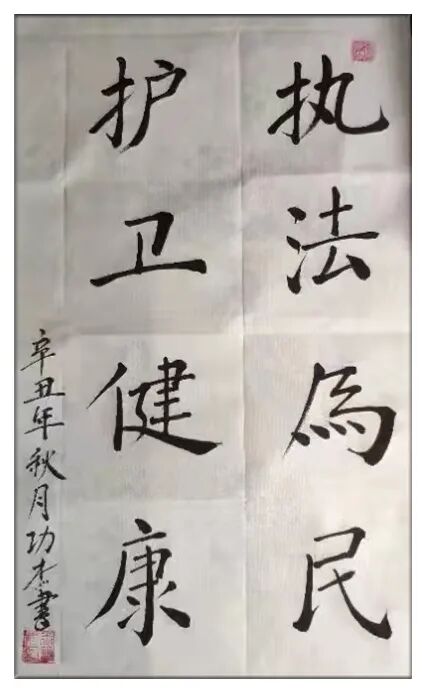 执法為民
护卫健康
辛丑年秋月功杰書